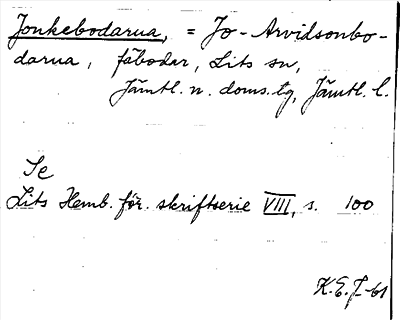 Jonkebodarna, = Jo-Arvidsonbo-
darna, fäbodar, Lits sn,
Jämtl. n. doms.tg, Jämtl. l.
Se
Lits Hemb. för. skriftserie VIII, s. 100
K.E.J-61